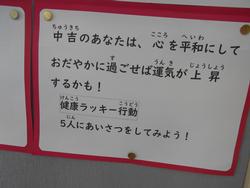 中吉のあなたは、心を平和にして
おだやかに過ごせば運気が上昇
するかも！
健康ラッキー行動
5人にあいさつをしてみよう！